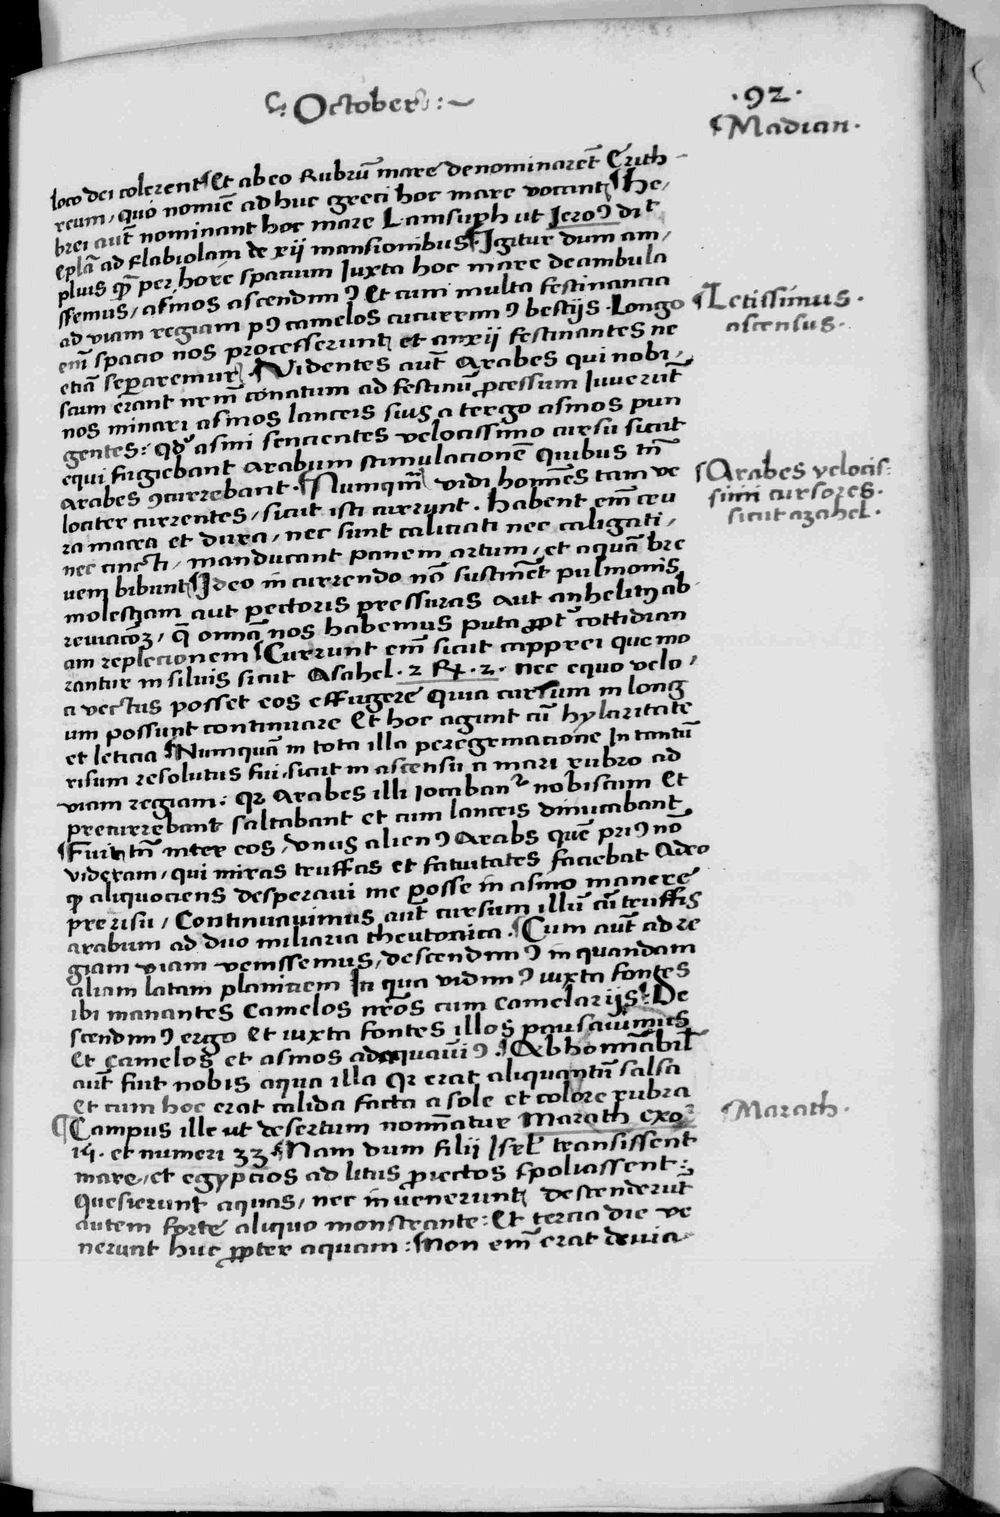 October
.92.
Madian.
loco dei colerent Et ab eo Rubrū mare denominaret̄ Erith-
reum, quo nomīe ad huc greci hoc mare vocant He,
brei aut̄ nominant hoc mare Lamsuph ut Jeroꝰ dit
eplā ad flabiolam de xij mansionibus Igitur dum am,
plius qꝫ per hore spacium Juxta hoc mare deambula
ssemus, asinos ascendimꝰ Et cum multa festinancia
ad viam regiam pꝰ camelos cucurrimꝰ bestijs Longo
em̄ spacio nos processerunt et anxij festinantes ne
etiā separemur Videntes aut̄ Arabes qui nobi,
scum erant nr̄m conatum ad festinū ꝓcessum Juverūt
nos minari asinos lanceis suis a tergo asinos pun
gentes: qd asini sencientes velocissimo cursu sicut
equi fugiebant Arabum stimulacionē Quibus tn̄
Arabes ꝯcurrebant. Numqm̄ vidi homīes tam ve
lociter currentes, sicut isti currunt. Habent em̄ ceu
ra macra et dura, nec sunt calciati nec caligati,
nec cincti, manducant panem artum, et aquā bre
vem bibunt Ideo in currendo nō sustinēt pulmonis
molestiam aut pectoris pressuras aut anhelitꝰ ab
reviacōꝫ, q̄ omnia nos habemus puta ꝓpt̄ cottidian
am replecionem Currunt em̄ sicut capprei que mo
rantur in silvis sicut Asahel. 2 R͞. 2. nec equo velo,
ci vectus posset eos effugere Quia cursum in long
um possunt continuare Et hoc agunt cū hylaritate
et leticia Numquā in tota illa peregrinacione In tantū
risum resolutus fui sicut in ascensu a mari rubro ad
viam regiam: qꝛ Arabes illi iocabanr̄ nobiscum Et
precurrebant saltabant et cum lanceis dimicabant
Fuit tn̄ inter eos, vnus alienꝰ Arabs quē priꝰ nō
videram, qui miras truffas et fatuitates faciebat Adeo
ꝙ aliquociens desperavi me posse in asino manere
pre risu, Continuavimus aut̄ cursum illū cū truffis
arabum ad duo miliaria theutonica. Cum aut̄ ad re
giam viam venissemus, descendimꝰ in quandam
aliam latam planiciem In qua vidimꝰ iuxta fontes
ibi manantes Camelos nr̄os cum camelarijs De
scendimꝰ ergo Et iuxta fontes illos pausavimus
Et camelos et asinos adaquavimꝰ. Abhominabil
aut̄ fuit nobis aqua illa Qꝛ erat aliquantū salsa
Et cum hoc erat calida facta a sole et colore rubra
Campus ille ut desertum nominatur Marath exo
15. et numeri 33 Nam dum filij Isrl̄ transissent
mare, et egypcios ad litus proiectos spoliassent:
Quesierunt aquas, nec invenerunt descenderūt
autem forte aliquo monstrante: Et tercia die ve
nerunt huc ꝓpter aquam: Non em̄ erat devia
Letissimus.
ascensus.
Arabes velocis:
simi cursores.
sicut azahel.
Marath.